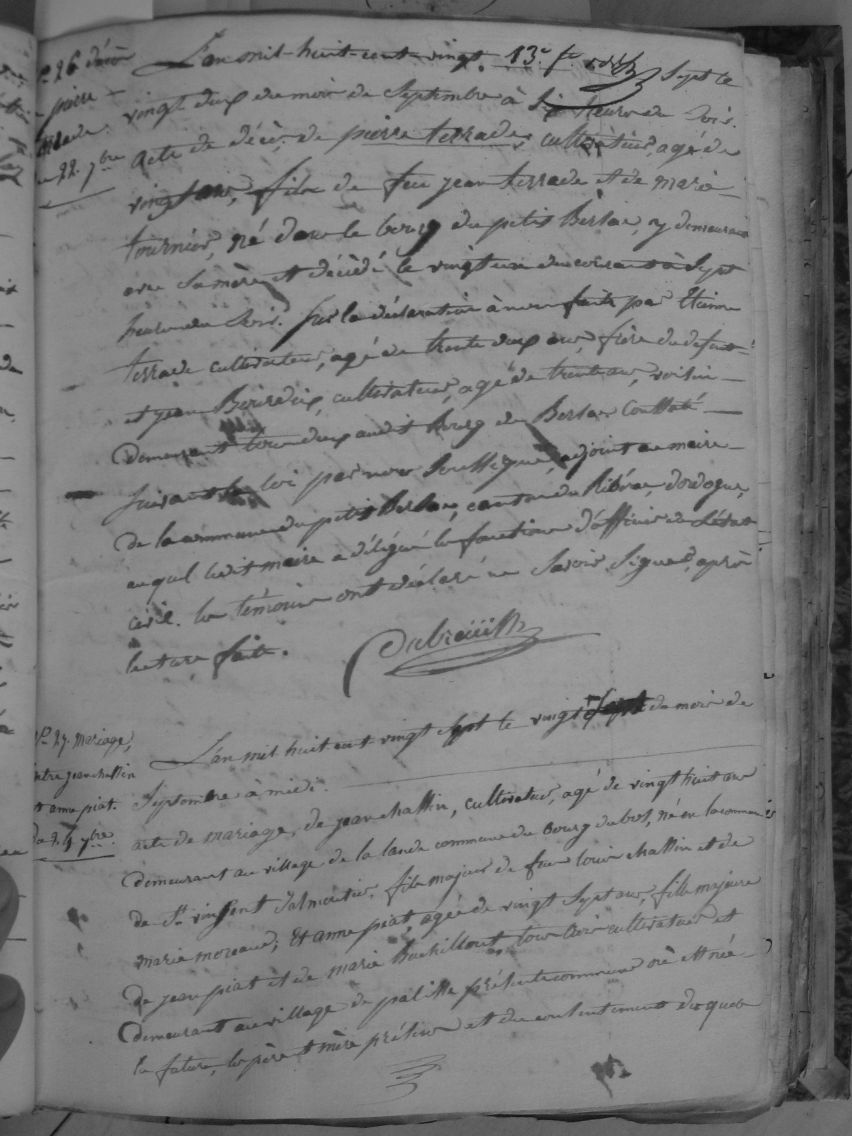 N.o 26 décès
pierre
terrade
du 22. 7bre
L'an mil huit cent vingt Sept le
13.e f.t
vingt deux du mois de Septembre à Six heures du Soir.
acte de décès de pierre terrade, cultivateur, agé de
vingt ans, fils de feu jean terrade et de marie
tournier, né dans le bourg du petit Bersac, y demeurant
avec Sa mère et décédé le vingt un du courant à Sept
heures du Soir. Sur la déclaration à nous faite par Etienne
terrade cultivateur, agé de trente deux ans, frère du defunt
et jean cultivateur, agé de trente ans, voisin
demeurant tous deux audit Bourg du Bersac Constaté
Suivant la loi par nous Soussigné, adjoint au maire
de la commune du petit Bersac, canton de Ribérac, dordogne,
auquel ledit maire a délégué les fonctions d'officier de L'état
civil. les témoins ont déclaré ne Savoir Signer, après
lecture faite.
Dubreüilh
N.o 27. Mariage,
entre jean chattin
et anne piat.
du 24 7bre
L'an mil huit cent vingt Sept le vingt du mois de
Septembre à midi.
acte de mariage, de jean chattin, cultivateur, agé de vingt huit ans
demeurant au village de la lande commune du Bourg du bost, né en la commune
de St vincent Jalmoutier, fils majeur de feu louis chattin et de
marie moreau; Et anne piat, agée de vingt Sept ans, fille majeure
de jean piat et de marie tous trois cultivateurs et
demeurant au village de présente commune où est née
la future, les père et mère présents et du consentement desquels